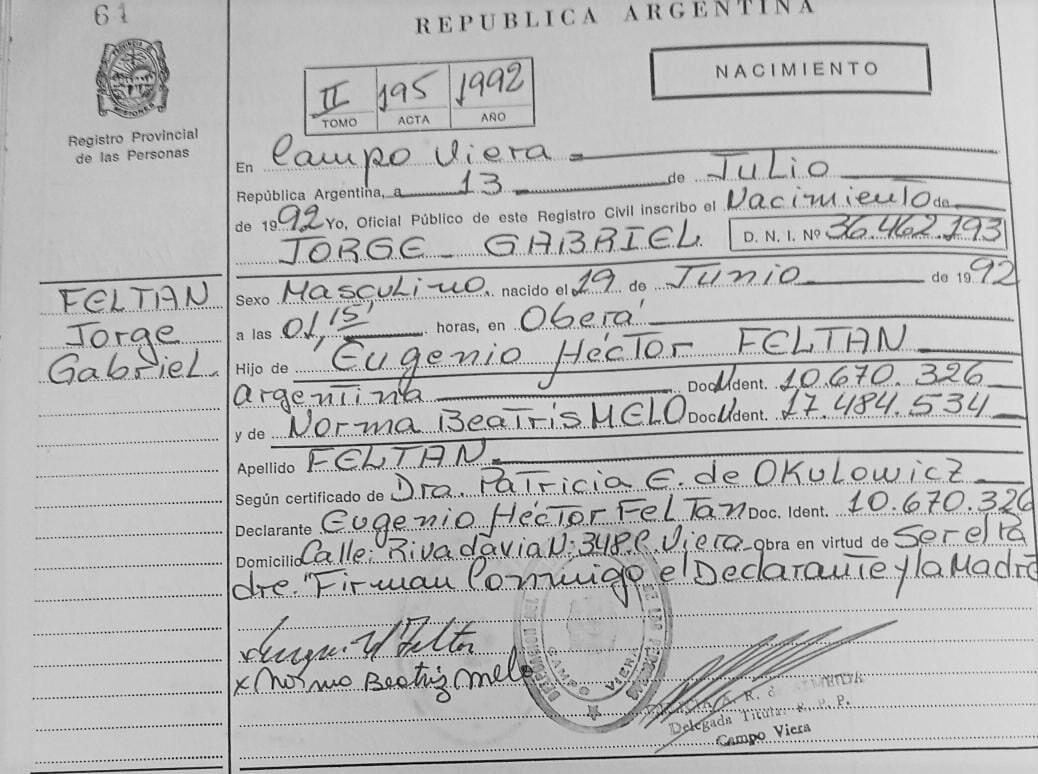 61
REPUBLICA ARGENTINA
NACIMIENTO
II 195 1992
TOMO ACTA AÑO
Registro Provincial
de las Personas
En Campo Viera
República Argentina, a 13 de JULIO
de 1992 Yo, Oficial Público de este Registro Civil inscribo el Nacimiento de
JORGE GABRIEL D. N. I. Nº 36.462.193
FELTAN
Jorge
Gabriel.
Sexo Masculino, nacido el 19 de Junio de 1992
a las 01,15' horas, en Oberá
Hijo de Eugenio Héctor FELTAN
argentina Doc U Ident. 10.670.326
y de Norma BeaTris MELO Doc U Ident. 17.484.534
Apellido FELTAN
Según certificado de Dra. PaTricia E. de OKulowicz
Declarante Eugenio Héctor FelTan Doc. Ident. 10.670.326
Domicilio Calle: Rivadavia N: 348.C. Viera Obra en virtud de Ser el Pa
dre. "Firman Conmigo el Declarante y la Madre
x Norma Beatriz Melo
CAMPO VIERA
Delegada Titular R. P. P.
Campo Viera